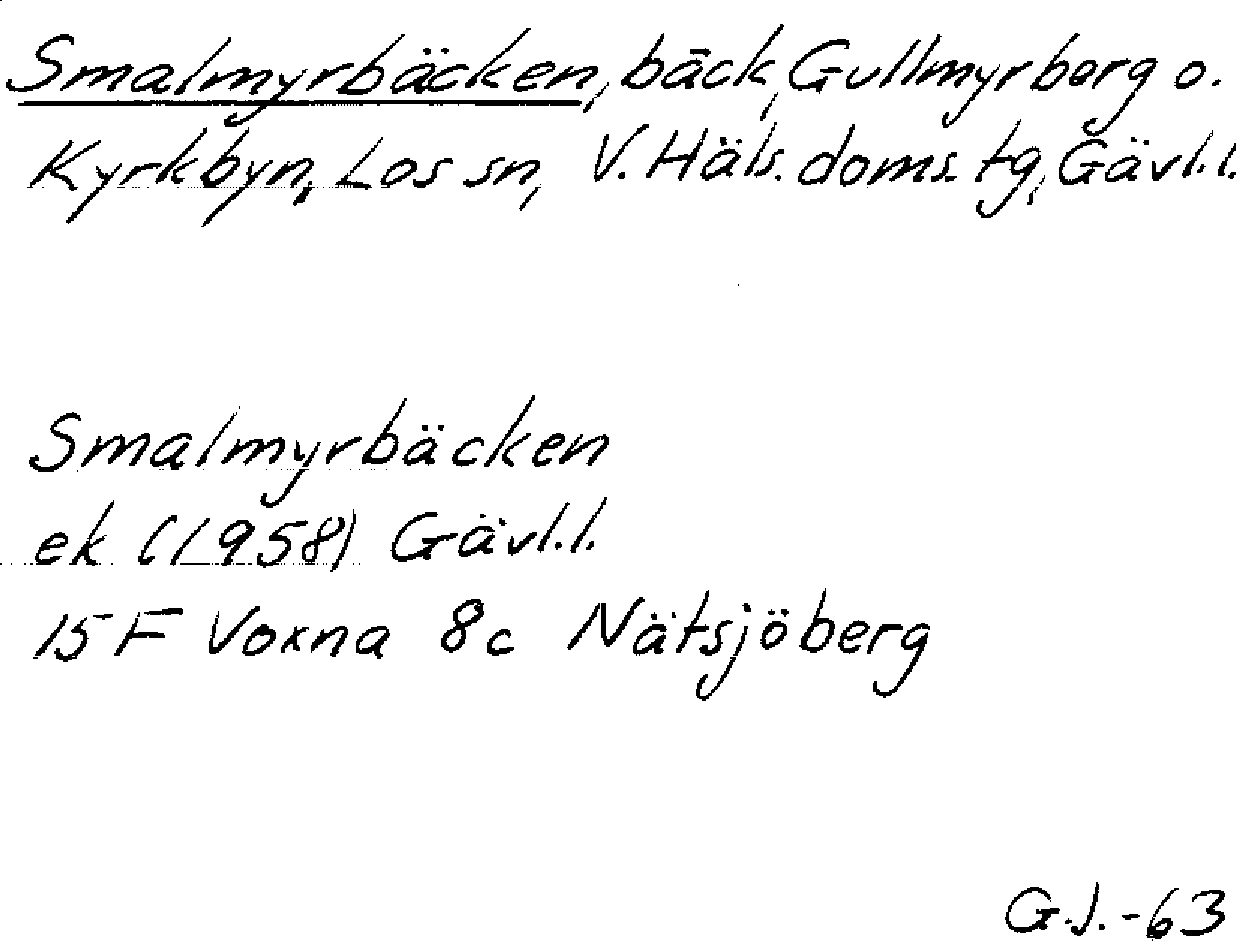 Smalmyrbäcken, bäck, Gullmyrberg o.
Kyrkbyn, Los sn, V. Häls. doms. tg, Gävl.l.
Smalmyrbäcken
ek (1958) Gävl.l.
15 F Voxna 8c Nätsjöberg
G.J.-63